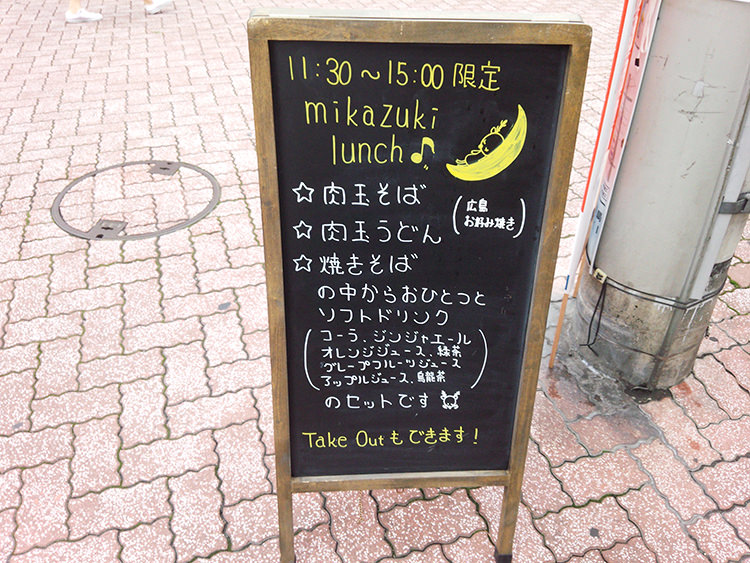 11:30～15:00 限定
mikazuki
lunch♪
☆ 肉玉そば
☆ 肉玉うどん
(広島
お好み焼き)
☆ 焼きそば
の中からおひとつと
ソフトドリンク
(コーラ、ジンジャエール
オレンジジュース、緑茶
グレープフルーツジュース
アップルジュース、烏龍茶)
のセットです
Take Outもできます!